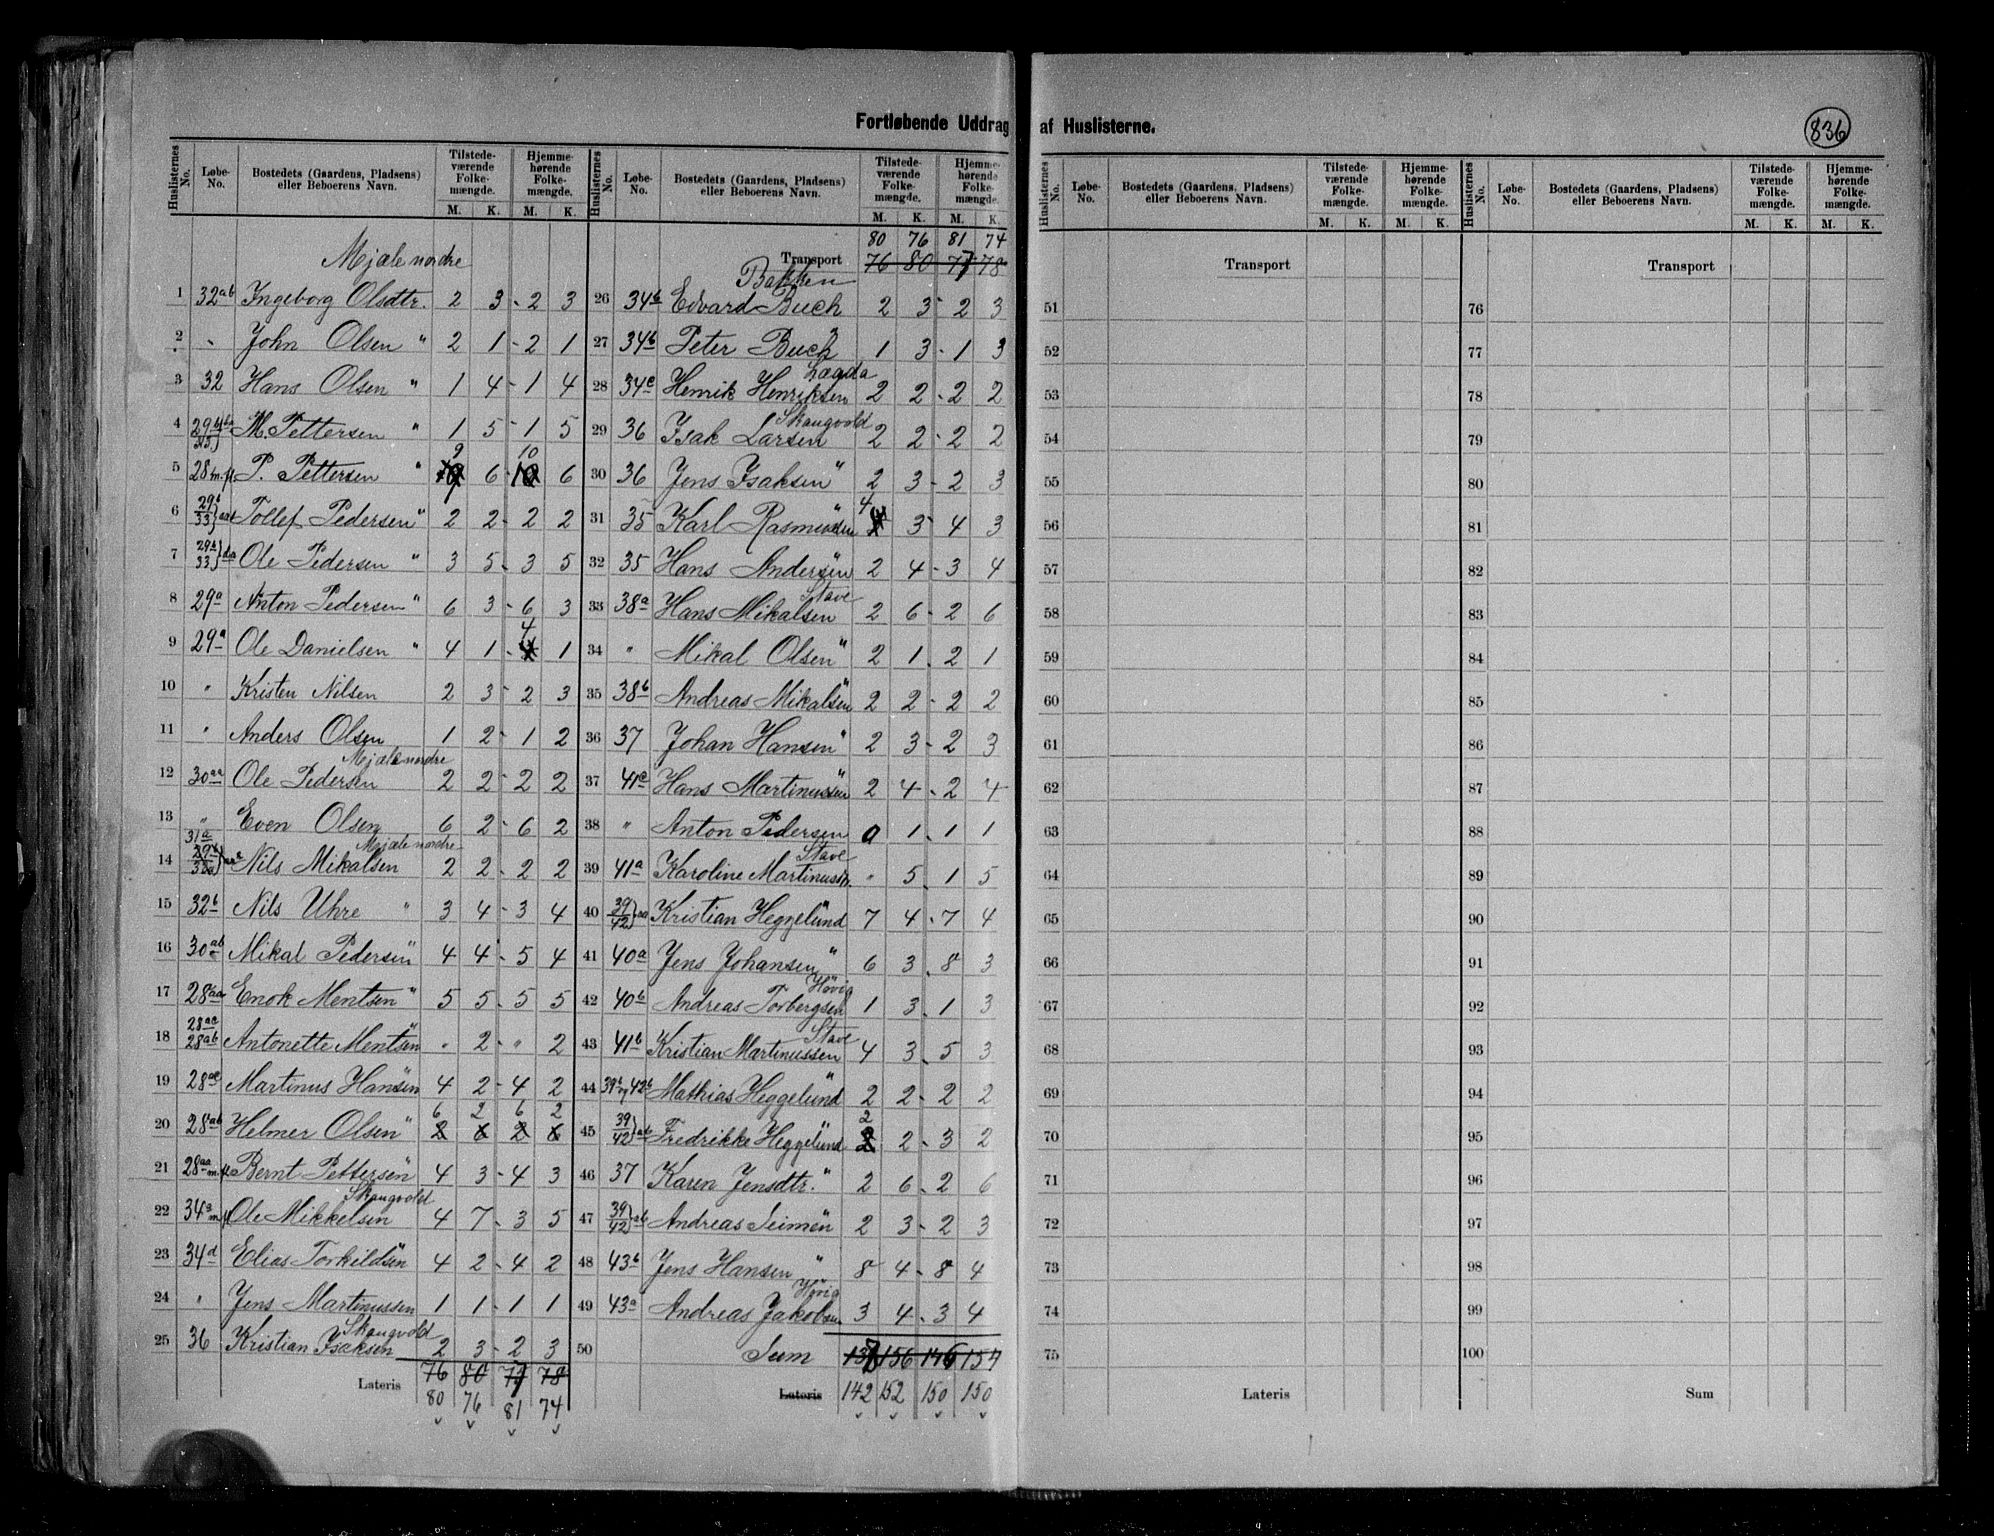 Fortløbende Uddrag af Huslisterne.
836
Huslisternes No. Løbe-No. Bostedets (Gaardens, Pladsens) eller Beboerens Navn. Tilstedeværende Folkemængde. M. K. Hjemmehørende Folkemængde. M. K.
Mjæle nordre
1 32ab Ingeborg Olsdtr. 2 3 - 2 3
2 " John Olsen " 2 1 - 2 1
3 32 Hans Olsen " 1 4 - 1 4
4 M. Pettersen " 1 5 - 1 5
5 28 m.fl. P. Pettersen " 9 6 - 10 6
6 29b/33 Tollef Pedersen " 2 2 - 2 2
7 29b/33 Ole Pedersen " 3 5 - 3 5
8 29a Anton Pedersen " 6 3 - 6 3
9 29a Ole Danielsen " 4 1 - 4 1
10 " Kristen Nilsen 2 3 - 2 3
11 " Anders Olsen 1 2 - 1 2
Mjæle nordre
12 30aa Ole Pedersen 2 2 - 2 2
13 " Even Olsen 6 2 - 6 2
Mjæle nordre
14 31a Nils Mikalsen 2 2 - 2 2
15 32b Nils Uhre " 3 4 - 3 4
16 30ab Mikal Pedersen " 4 4 - 5 4
17 28aa Enok Mentsen " 5 5 - 5 5
18 28ac 28ab Antonette Mentsen " " 2 - " 2
19 28ac Martinus Hansen " 4 2 - 4 2
6 2 6 2
20 28ab Helmer Olsen " 2 6 2 6
21 28aa m.fl. Bernt Pettersen " 4 3 - 4 3
Skaugvold
22 34a m.fl. Ole Mikkelsen 4 7 - 3 5
23 34d Elias Torkildsen " 4 2 - 4 2
24 " Jens Martinussen 1 1 - 1 1
Skaugvold
25 36 Kristian Isaksen 2 3 - 2 3
76 80 77 78
Lateris 80 76 81 74
Huslisternes No. Løbe-No. Bostedets (Gaardens, Pladsens) eller Beboerens Navn. Tilstedeværende Folkemængde. M. K. Hjemmehørende Folkemængde. M. K.
80 76 81 74
Transport 76 80 77 78
Bakken
26 34b Edvard Buch 2 3 - 2 3
27 34b Peter Buch " 1 3 - 1 3
Lægda
28 34c Henrik Henriksen 2 2 - 2 2
Skaugvold
29 36 Isak Larsen 2 2 - 2 2
30 36 Jens Isaksen " 2 3 - 2 3
31 35 Karl Rasmussen " 4 3 - 4 3
32 35 Hans Andersen " 2 4 - 3 4
Stave
33 38a Hans Mikalsen 2 6 - 2 6
34 " Mikal Olsen " 2 1 - 2 1
35 38b Andreas Mikalsen " 2 2 - 2 2
36 37 Johan Hansen " 2 3 - 2 3
37 41a Hans Martinussen " 2 4 - 2 4
38 " Anton Pedersen 0 1 - 1 1
Stave
39 41a Karoline Martinusdtr. " 5 - 1 5
40 39/42 aa Kristian Heggelund " 7 4 - 7 4
41 40a Jens Johansen " 6 3 - 8 3
Høvig
42 40b Andreas Torbergsen 1 3 - 1 3
Stave
43 41b Kristian Martinussen 4 3 - 5 3
44 39b og 42b Mathias Heggelund " 2 2 - 2 2
45 39/42 ab Fredrikke Heggelund " 2 2 - 3 2
46 37 Karen Jensdtr. " 2 6 - 2 6
47 39/42 ab Andreas Seimen " 2 3 - 2 3
48 43b Jens Hansen " 8 4 - 8 4
Høvig
49 43a Andreas Jakobsen 3 4 - 3 4
50 Sum 137 156 146 154
Lateris 142 152 150 150
Huslisternes No. Løbe-No. Bostedets (Gaardens, Pladsens) eller Beboerens Navn. Tilstedeværende Folkemængde. M. K. Hjemmehørende Folkemængde. M. K.
Transport
51
52
53
54
55
56
57
58
59
60
61
62
63
64
65
66
67
68
69
70
71
72
73
74
75
Lateris
Huslisternes No. Løbe-No. Bostedets (Gaardens, Pladsens) eller Beboerens Navn. Tilstedeværende Folkemængde. M. K. Hjemmehørende Folkemængde. M. K.
Transport
76
77
78
79
80
81
82
83
84
85
86
87
88
89
90
91
92
93
94
95
96
97
98
99
100
Sum